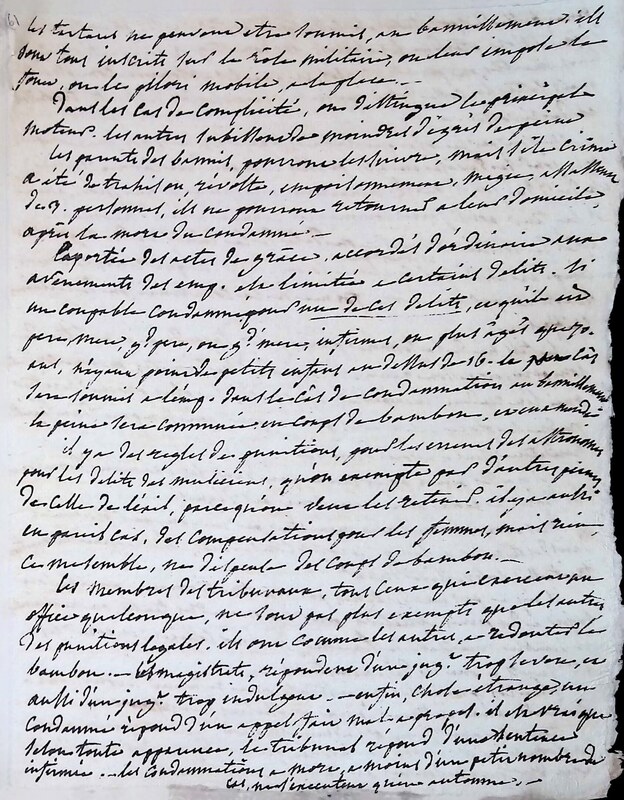 les tartares ne peuvent etre soumis, au bannissement. ils
sont tous inscrits sur le rôle militaire, on leur impose le
fouet, ou le pilori mobile, a la place. —
Dans les cas de complicité, on distingue le principal
moteur. les autres subissent de moindres dégrés de peine
les parents des bannis, pourront les suivre, mais si le crime
a été de trahison, révolte, empoisonnement, magie, assassinat
de 3. personnes, ils ne pourront retourner a leur domicile,
après la mort du condamné. —
La portée des actes de grâce, accordés d'ordinaire aux
avènements des emp. est limitée a certains delits. si
un coupable condamné pour un de ces delits, a, qu'il ait
pere, mere, gd. pere, ou gd. mere, infirmes, ou plus agés que 70.
ans, n'ayant point de petits enfans au dessus de 16. le cas
sera soumis a l'emp. dans le cas de condamnation au bannissement
la peine sera commuée en coups de bambou, et en amende
il y a des regles de punitions, pour les erreurs des astronomes
pour les delits des musiciens, qu'on exempte par d'autres peines
de celle de l'exil, parce qu'on veut les retenir. il y a aussi
en pareil cas, des compensations pour les femmes, mais rien,
ce me semble, ne dispense des coups de bambou. —
Les membres des tribunaux, tous ceux qui exercent un
office quelconque, ne sont pas plus exempts que les autres
des punitions legales. ils ont comme les autres, a redouter le
bambou. — les magistrats, répondent d'un jugt. trop sevère, et
aussi d'un jugt. trop indulgent. — enfin, chose étrange, un
condamné répond d'un appel fait mal-a-propos. il est vrai que
selon toute apparence, le tribunal répond d'une sentence
infirmée. — les condamnations a mort, a moins d'un petit nombre de
cas, ne s'executent qu'en automne. —